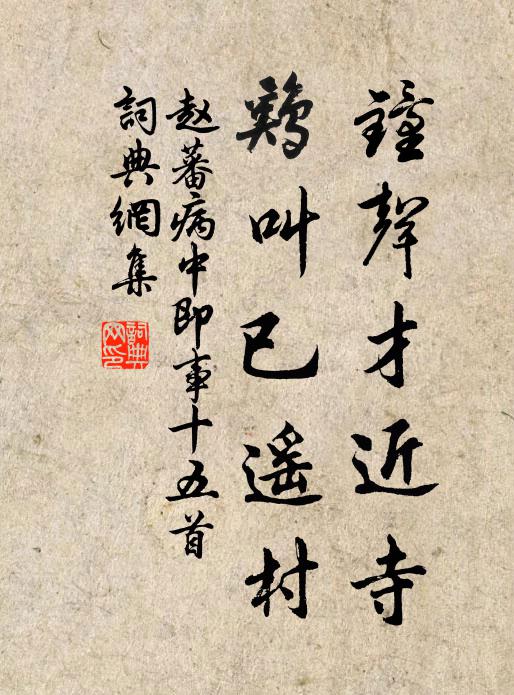 鐘聲才近寺
鷄叫已遥村
赵蕃病中即事十五首
詞典網集
詞典网印